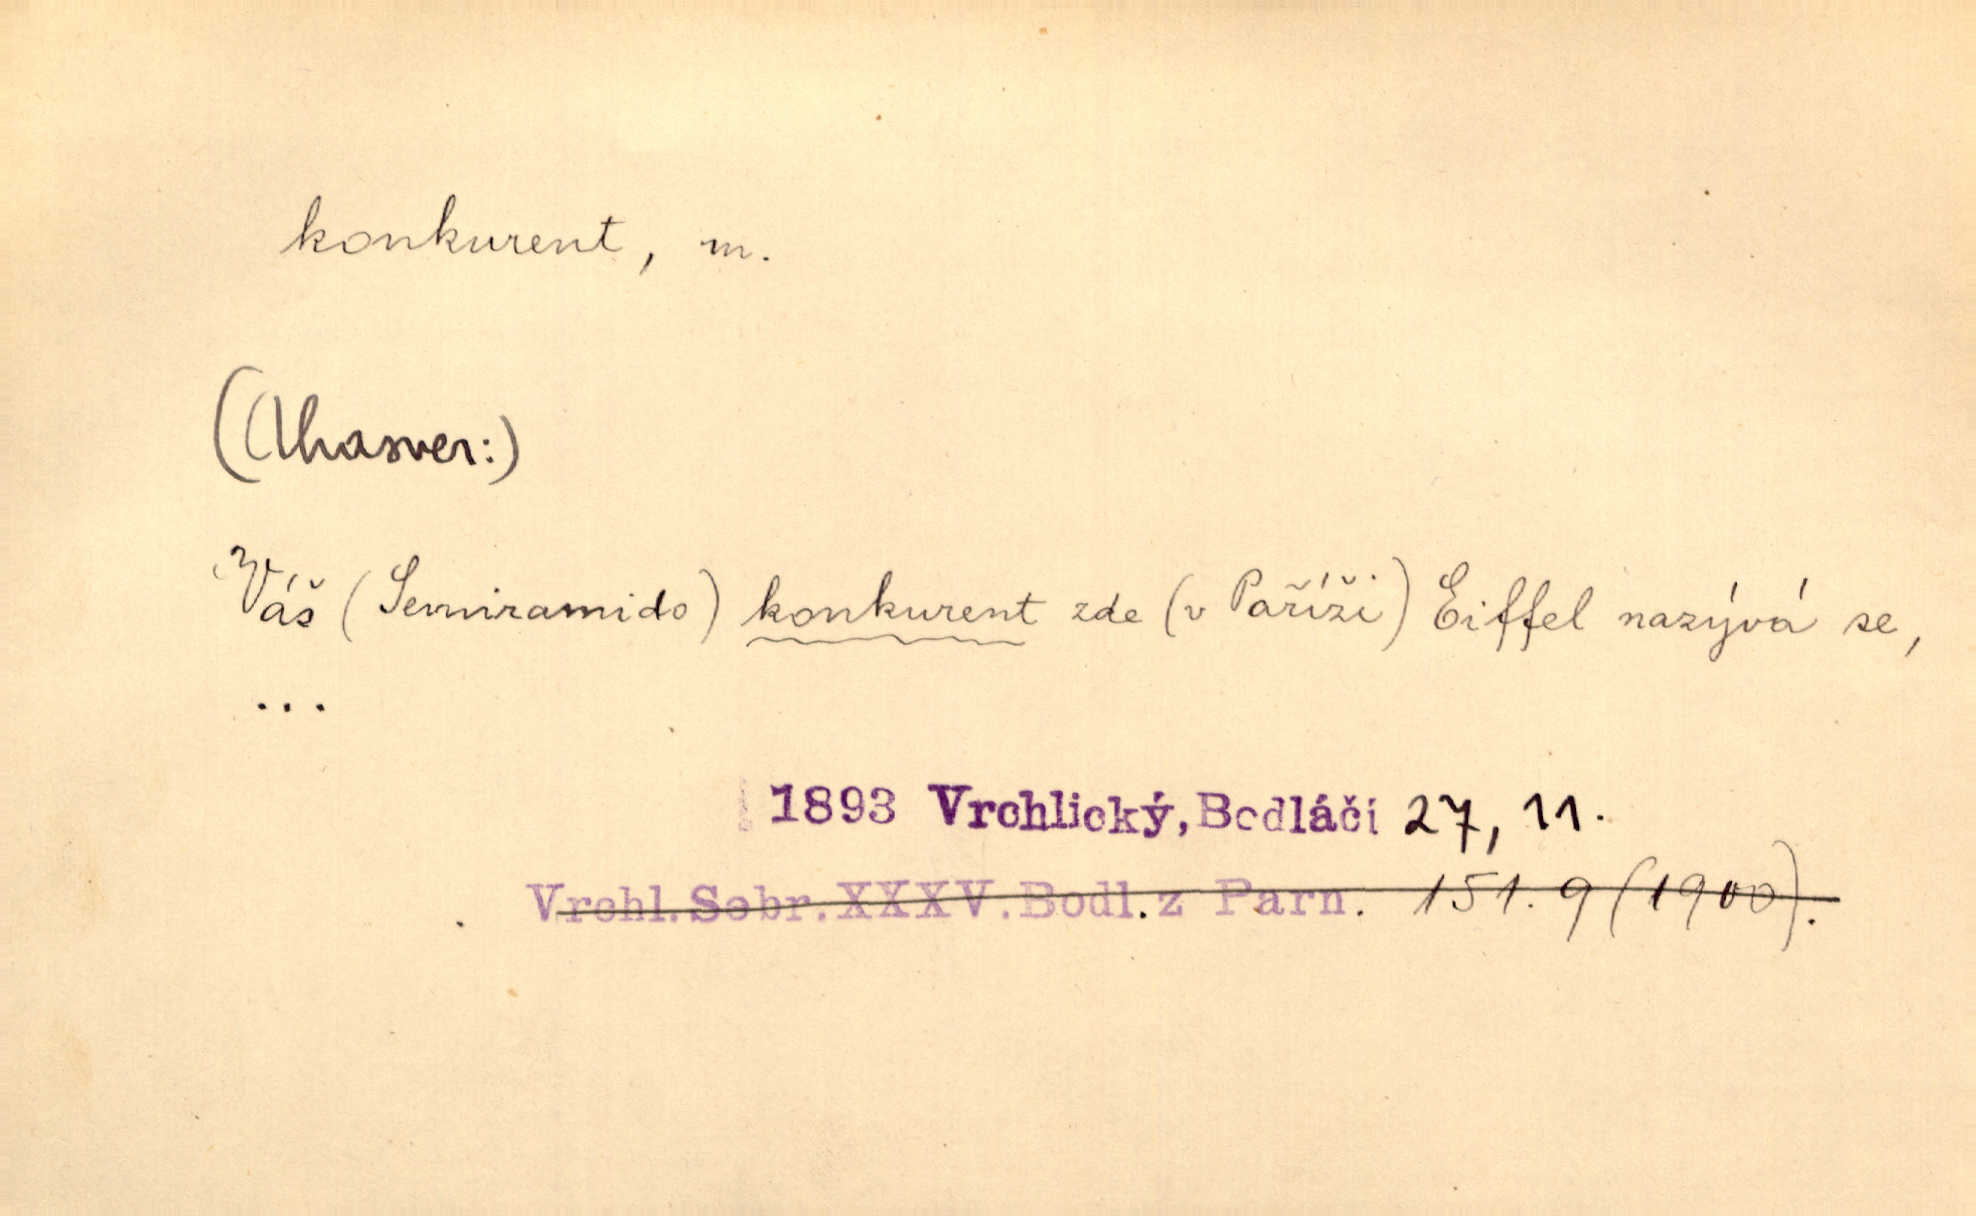 konkurent, m.
(Ahasver:)
Váš (Semiramido) konkurent zde (v Paříži) Eiffel nazývá se,
...
1893 Vrchlický, Bodláčí 27, 11.
Vrchl. Sebr. XXXV. Bodl. z Parn. 151. 9 (1900).